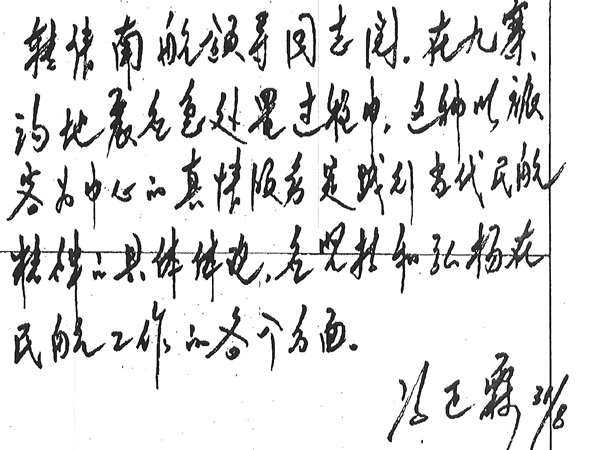 转传南航领导同志阅。在九寨
沟地震应急处置过程中，这种以旅
客为中心的真情服务是践行当代民航
精神的具体体现，应坚持和弘扬在
民航工作的各个方面。
冯正霖 31/8